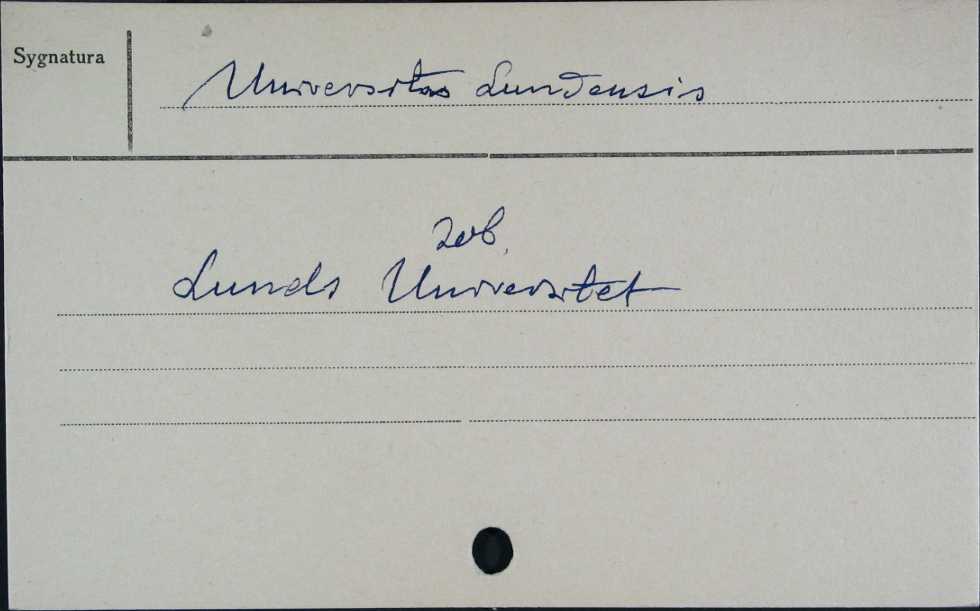 Sygnatura
Universitas Lundensis
zob.
Lunds Universitet